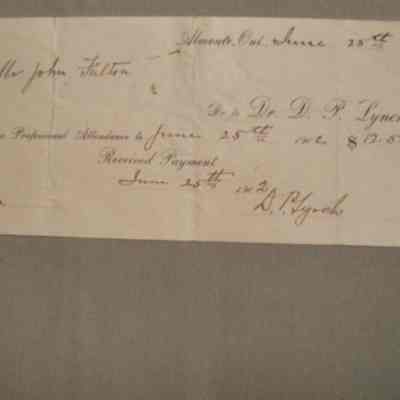 Almonte, Ont. June 25th
Mr John Fulton
Dr. to Dr. D. P. Lynch
Professional Attendance to June 25th 1902 $ 12.5
Received Payment
June 25th 1902
D. P. Lynch